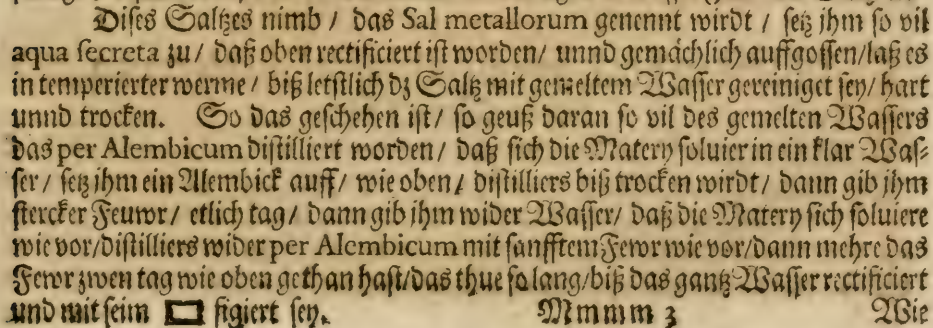 Dises Saltzes nimb / das Sal metallorum genennt wirdt / setz jhm so vil
aqua secreta zu / daß oben rectificiert ist worden / unnd gemächlich auffgossen / laß es
in temperierter werme / biß letstlich dz Saltz mit gemeltem Wasser gereiniget sey / hart
unnd trocken. So das geschehen ist / so geuß daran so vil des gemelten Wassers
das per Alembicum distilliert worden / daß sich die Matery soluier in ein klar Was⸗
ser / setz jhm ein Alembick auff / wie oben / distilliers biß trocken wirdt / dann gib jhm
stercker Feuwr / etlich tag / dann gib jhm wider Wasser / daß die Matery sich soluiere
wie vor / distilliers wider per Alembicum mit sanfftem Fewr wie vor / dann mehre das
Fewr zwen tag wie oben gethan hast / das thue so lang / biß das gantz Wasser rectificiert
und mit seim ▭ figiert sey. Mmmm 3 Wie